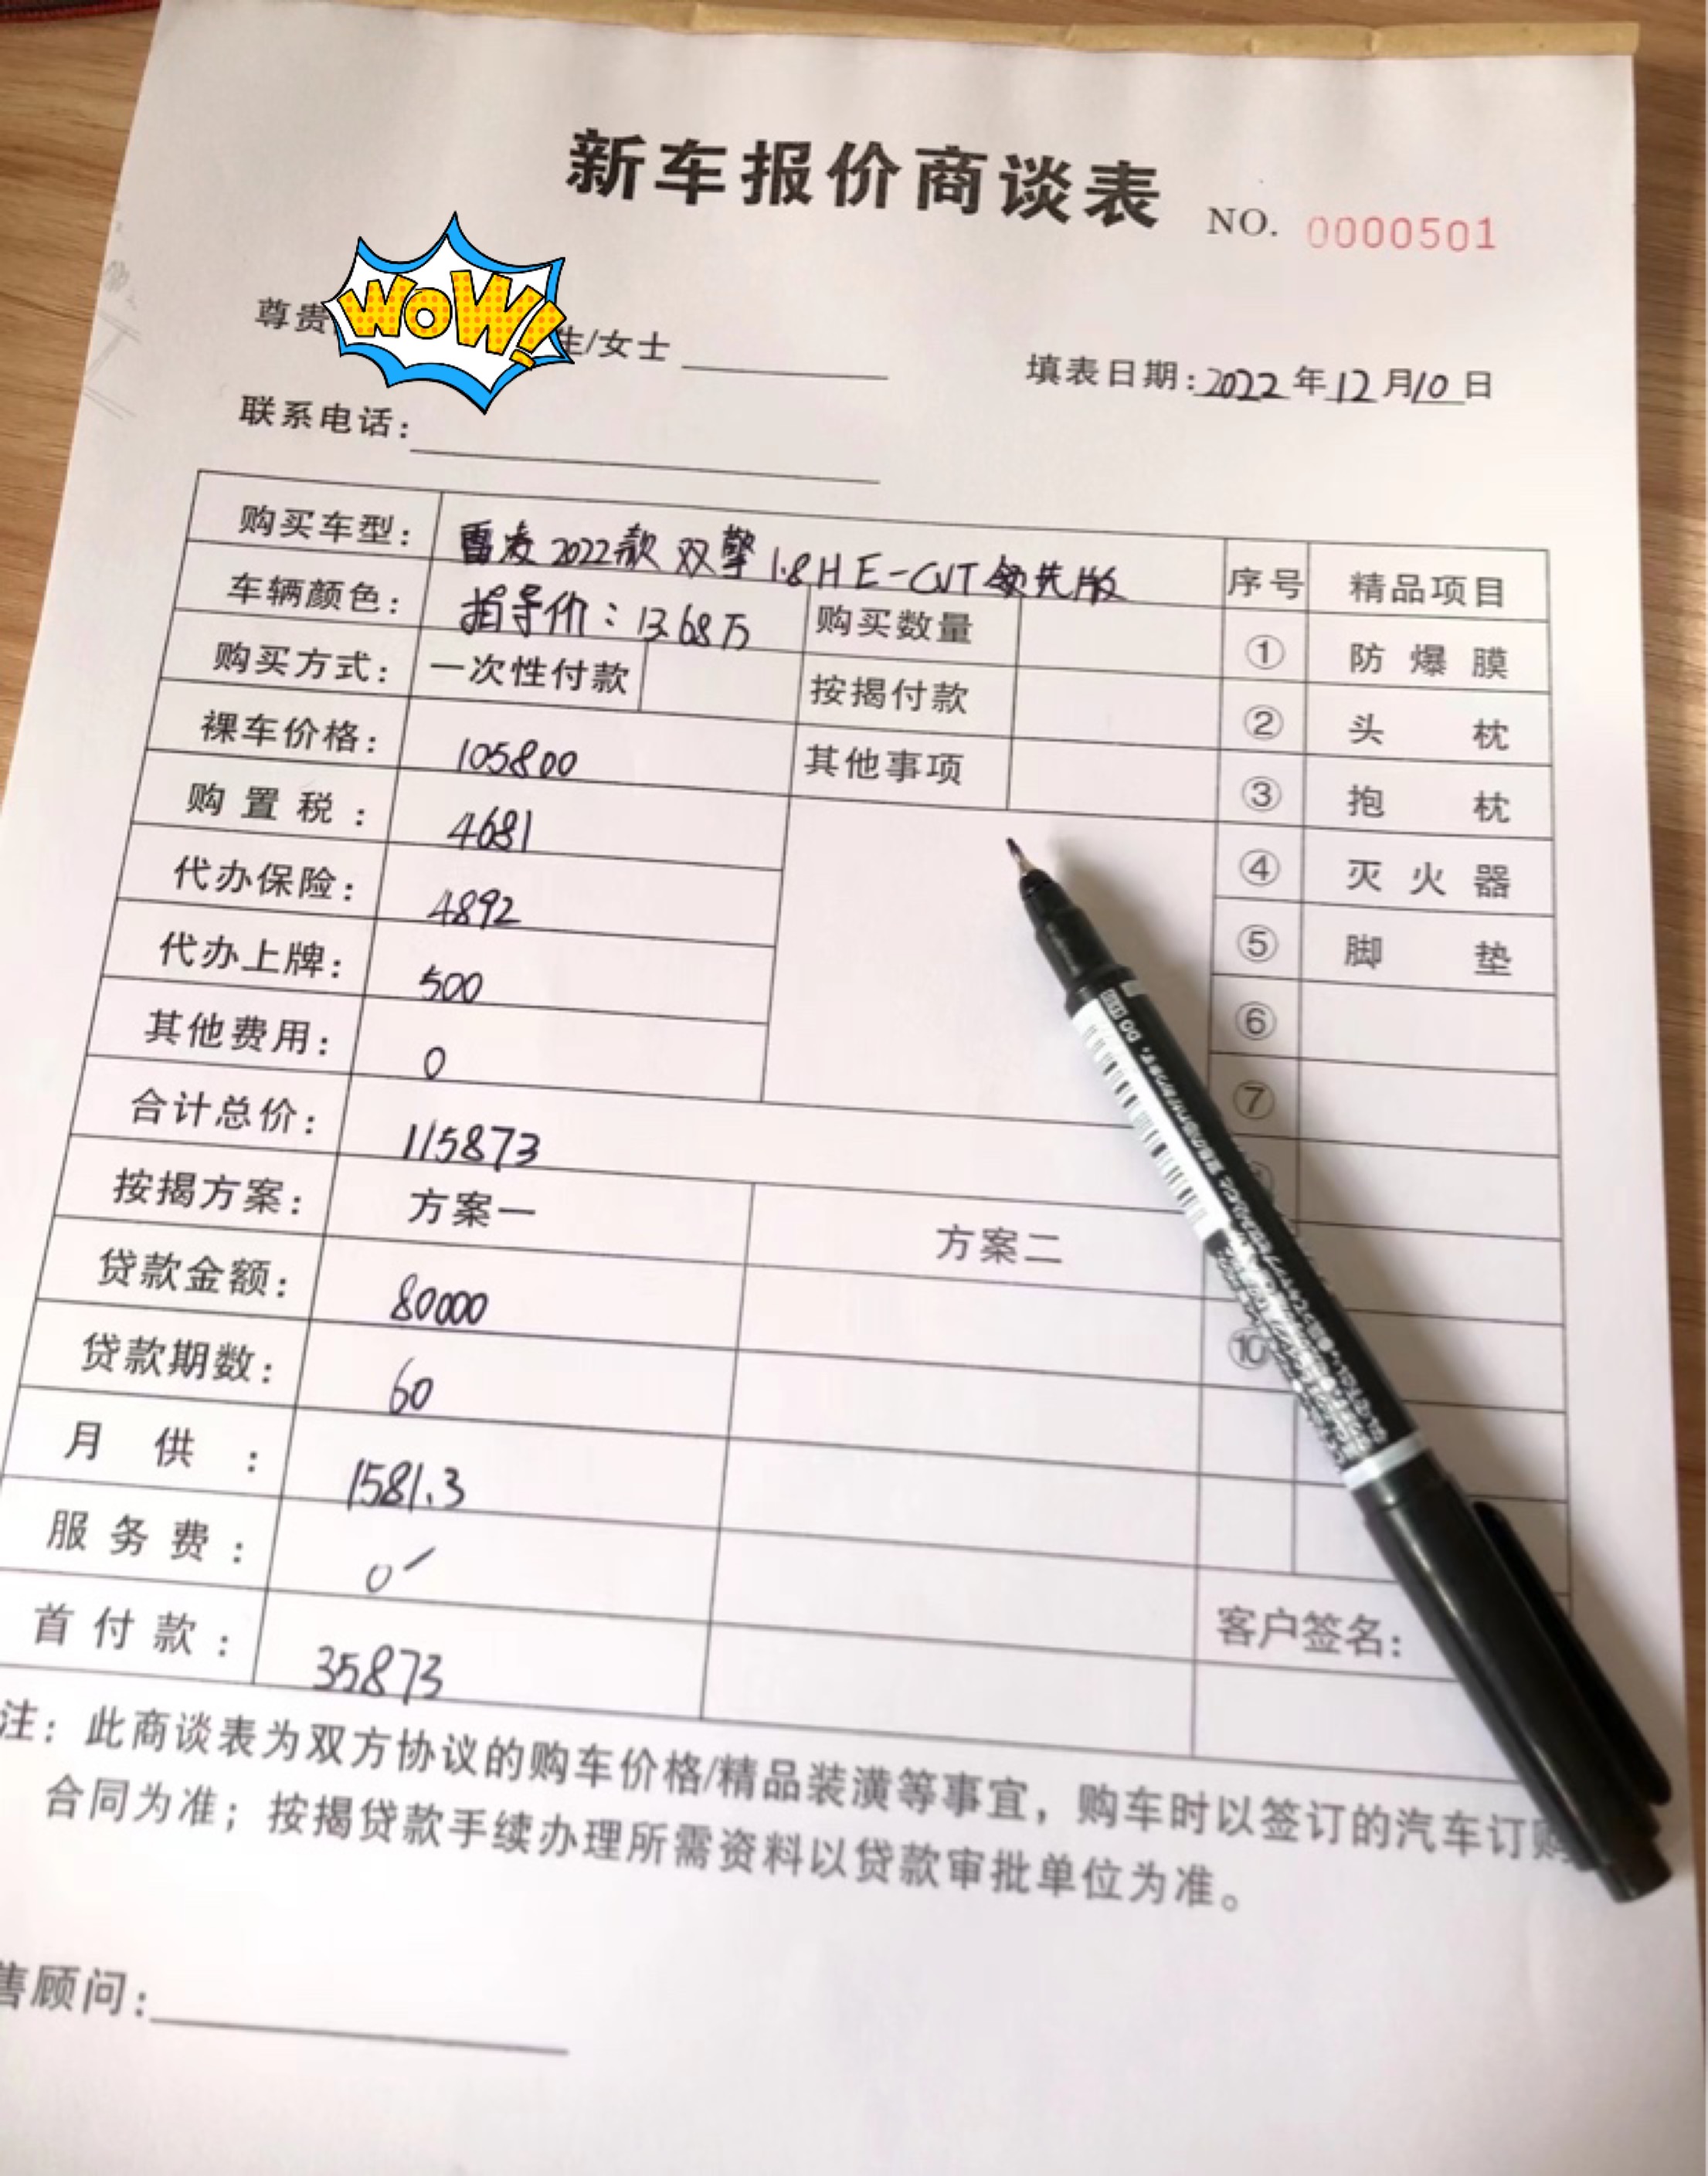 新车报价商谈表 NO. 0000501
WOW!
尊贵 生/女士 填表日期:2022年12月10日
联系电话:
购买车型: 雷凌2022款 双擎 1.8H E-CVT 领先版 序号 精品项目
车辆颜色: 指导价:13.68万 购买数量 ① 防爆膜
购买方式: 一次性付款 按揭付款 ② 头枕
裸车价格: 105800 其他事项 ③ 抱枕
购置税: 4681 ④ 灭火器
代办保险: 4892 ⑤ 脚垫
代办上牌: 500 ⑥
其他费用: 0 ⑦
合计总价: 115873
按揭方案: 方案一 方案二
贷款金额: 80000 ⑩
贷款期数: 60
月供: 1581.3
服务费: 0
首付款: 35873 客户签名:
注:此商谈表为双方协议的购车价格/精品装潢等事宜,购车时以签订的汽车订购
合同为准;按揭贷款手续办理所需资料以贷款审批单位为准。
售顾问: